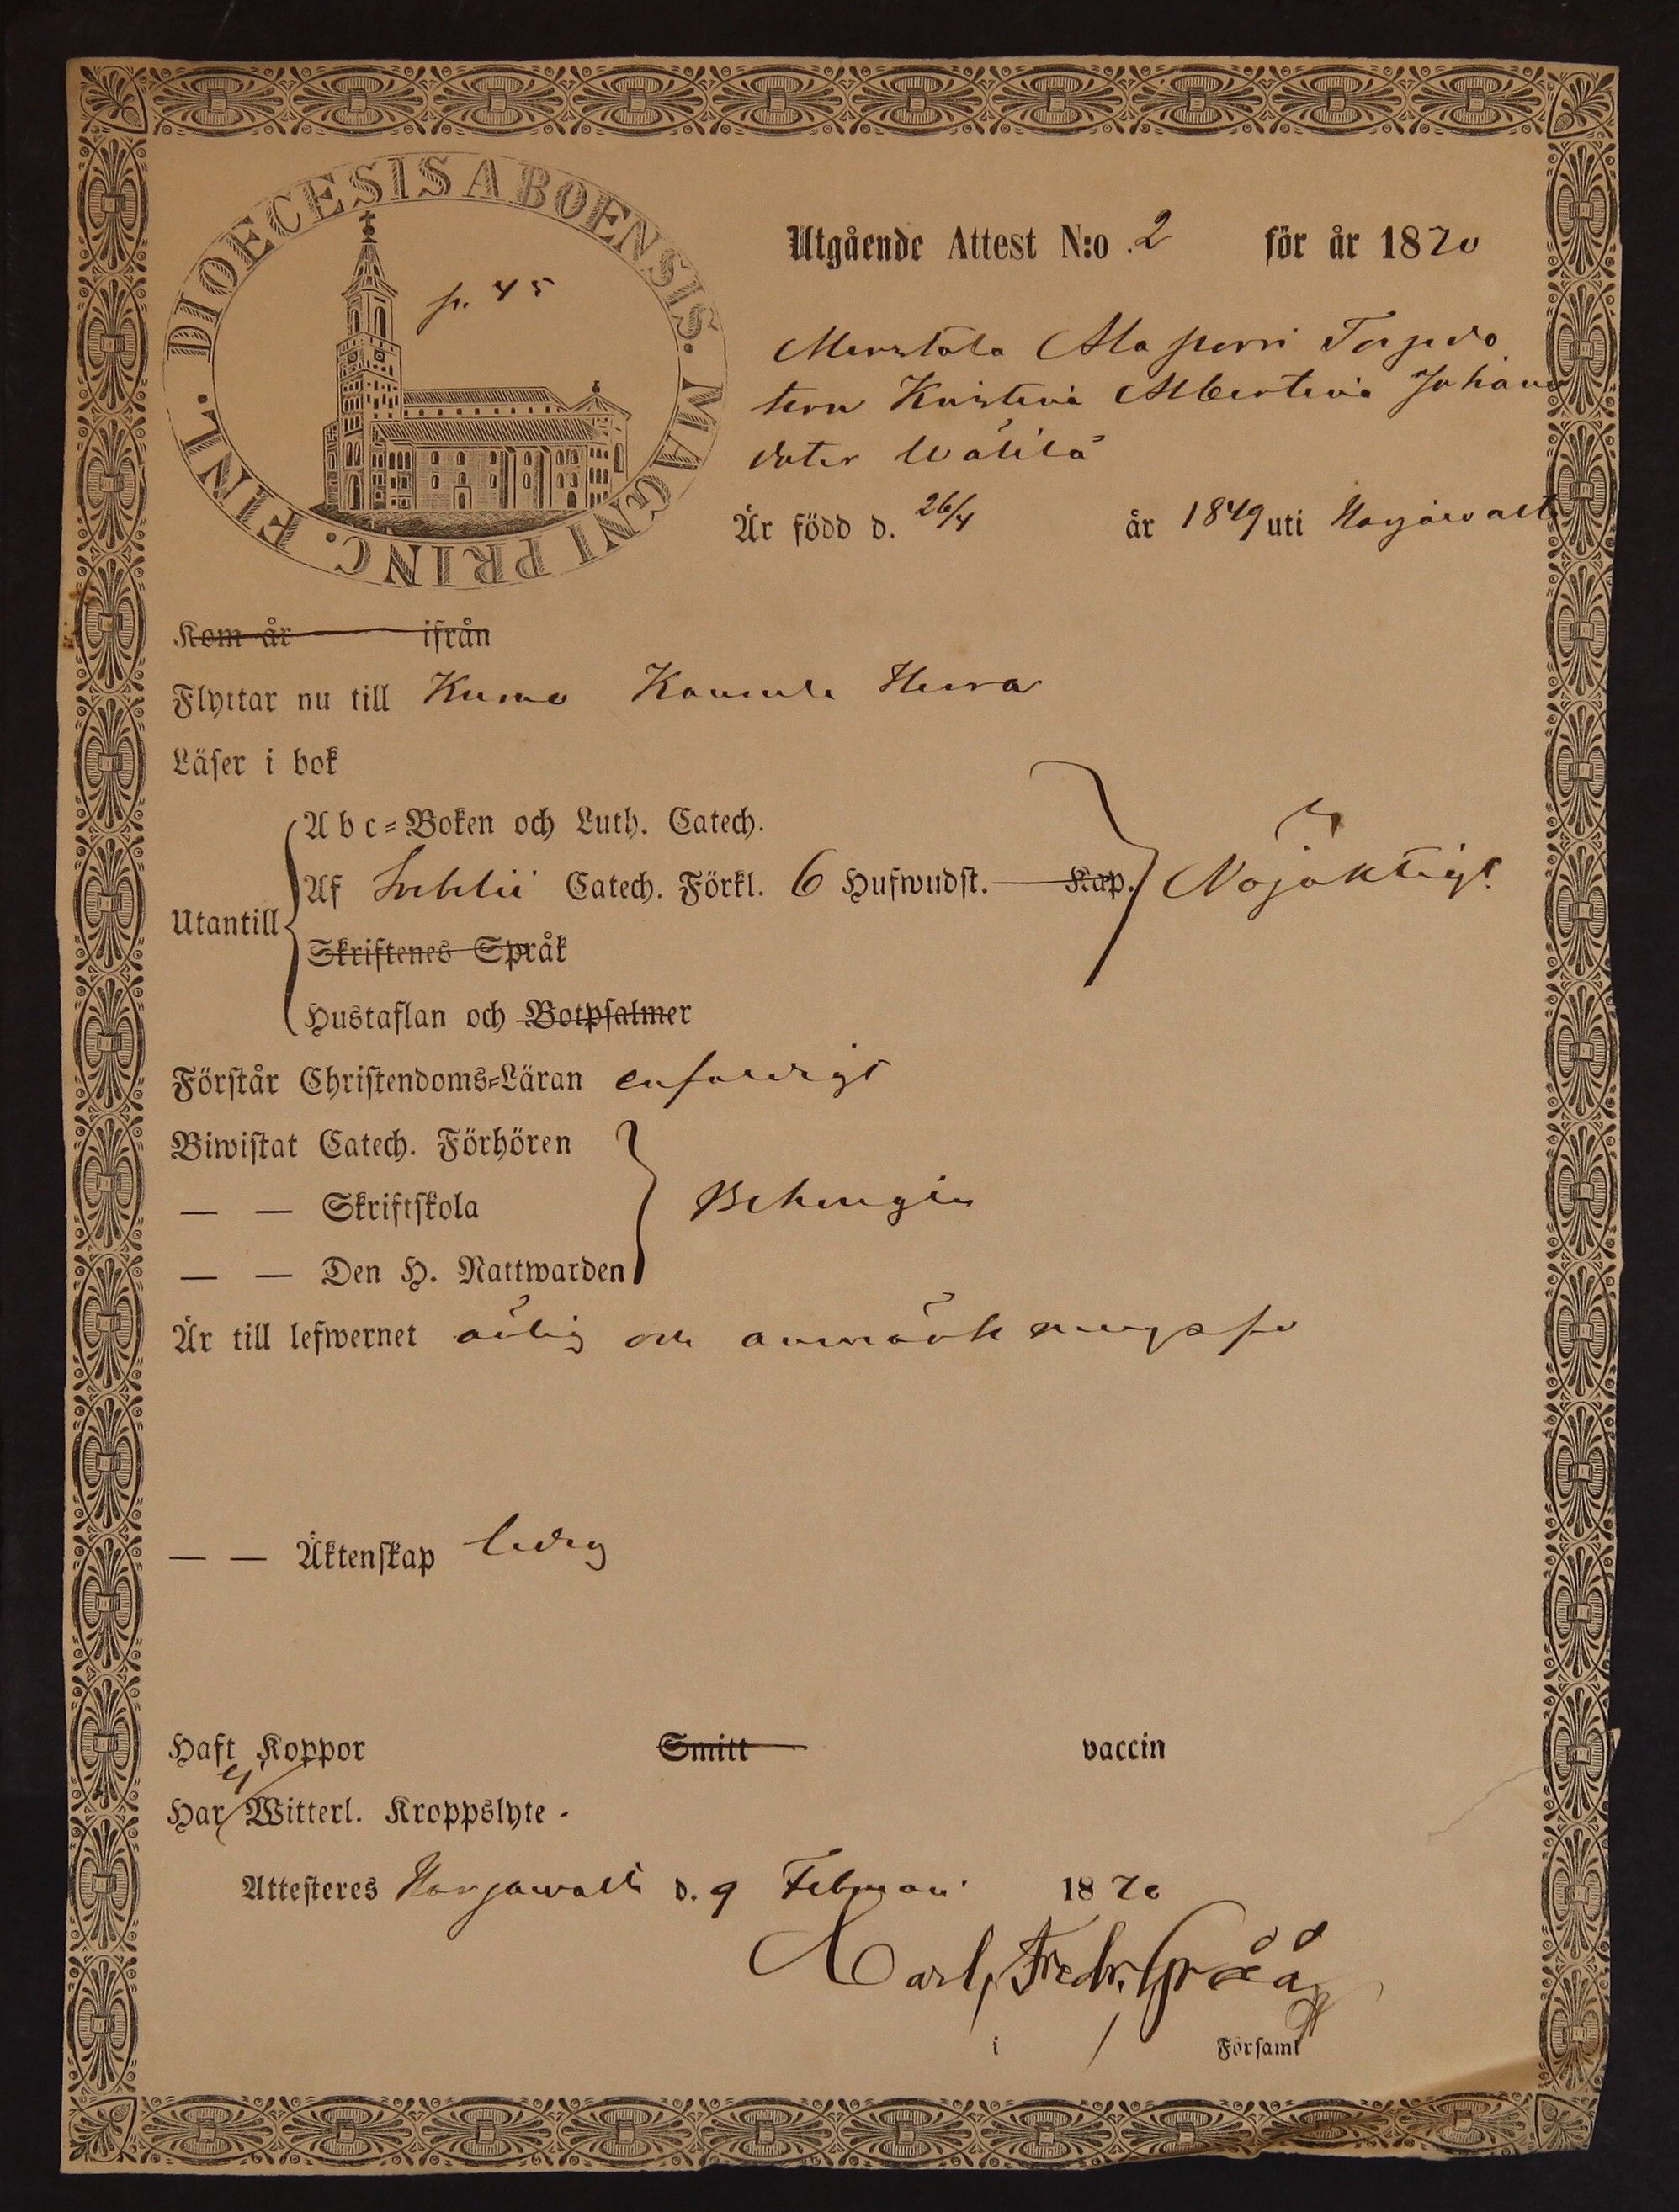 DIOECESIS ABOENSIS. MAGNI PRINC. FINL.
p. 45
Utgående Attest N:o 2 för år 1870
Torpedo
tern Kristina Albertina Johans
doter Wälilä
Är född d. 26/4 år 1849 uti Harjawalta
Kom år ifrån
Flyttar nu till Kumo
Läser i bok
Utantill
Abc-Boken och Luth. Catech.
Af Svebelii Catech. Förkl. 6 Hufwudst. Kap. Nöjaktigt
Skriftenes Språk
Hustaflan och Botpsalmer
Förstår Christendoms-Läran enfaldigt
Biwistat Catech. Förhören
— — Skriftskola Behörigen
— — Den H. Nattwarden
Är till lefwernet ärlig och anmärkningsfri
— — Äktenskap ledig
Haft Koppor Smitt vaccin
Har ej Witterl. Kroppslyte -
Attesteres Harjawalta d. 9 Februari 1870
Karl Fredr. Gråå
i Församl